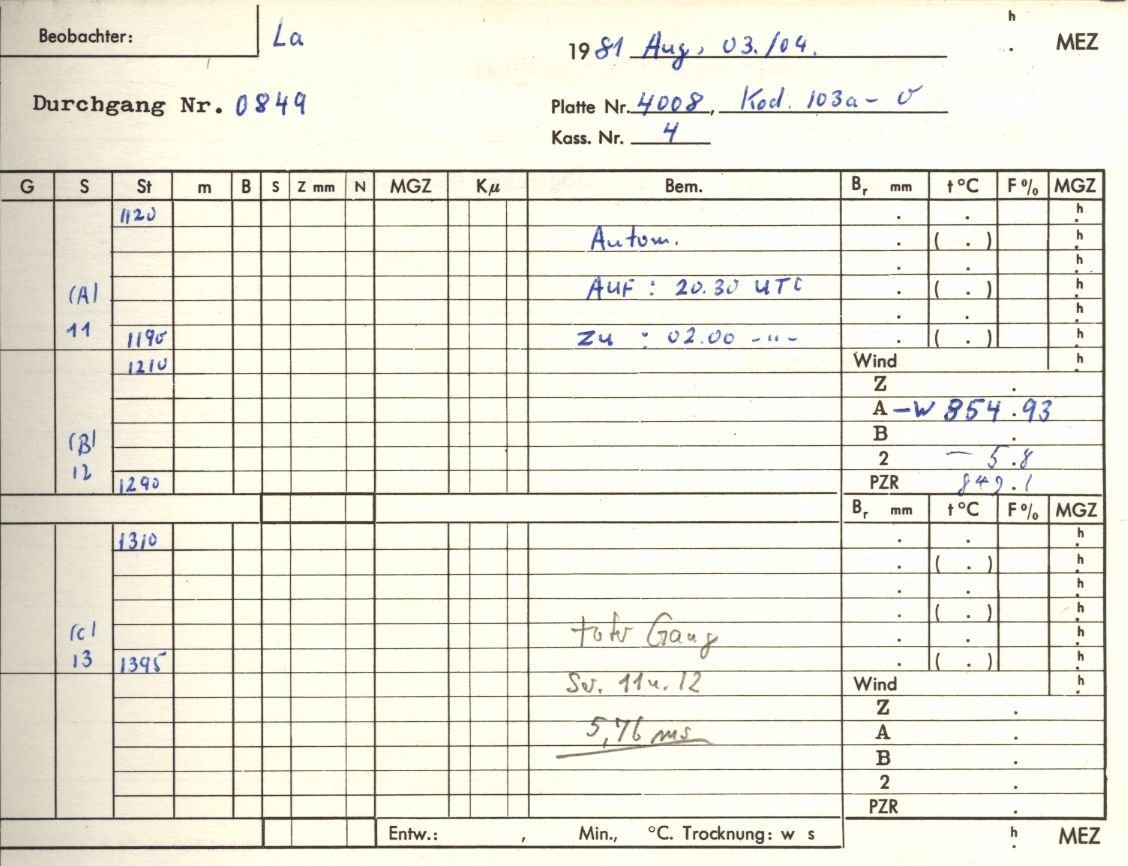 Beobachter: La
h
1981 Aug. 03./04. . MEZ
Durchgang Nr. 0849
Platte Nr. 4008, Kod. 103a-O
Kass. Nr. 4
G S St m B S Z mm N MGZ Kμ Bem. Br mm t°C F% MGZ
1120 . . h
Autom. . ( . ) h
. . h
(A) AUF : 20.30 UTC . ( . ) h
. . h
11 1190 ZU : 02.00 -"- . ( . ) h
1210 Wind h
Z .
A -W 854.93
(B) B .
12 2 - 5.8
1290 PZR 849.1
Br mm t°C F% MGZ
1310 . . h
. ( . ) h
. . h
. ( . ) h
(C) toter Gang . . h
13 1395 . ( . ) h
11 u. 12 Wind h
Z .
5,76 ms A .
B .
2 .
PZR .
Entw.: , Min., °C. Trocknung: w s h . MEZ